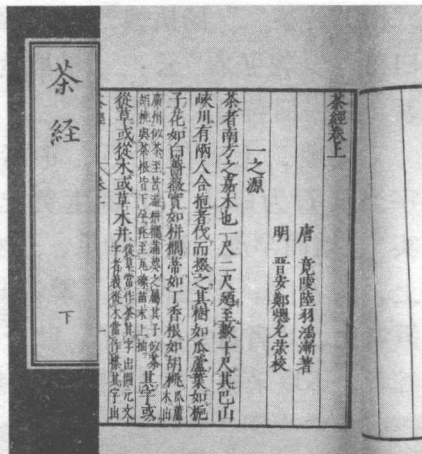 茶經卷上
唐 竟陵陸羽鴻漸著
明 晋安鄭熜允榮校
一之源
茶者南方之嘉木也一尺二尺廼至數十尺其巴山
峽川有兩人合抱者伐而掇之其樹如瓜蘆葉如梔
子花如白薔薇實如栟櫚蒂如丁香根如胡桃瓜蘆木出
廣州似茶至苦澁栟櫚蒲葵之屬其子似茶胡桃與茶根皆下孕兆至瓦礫苗木上抽其字或
從草或從木或草木并從草當作茶其字出開元文字者義從木當作𣘻其字出
茶经
下